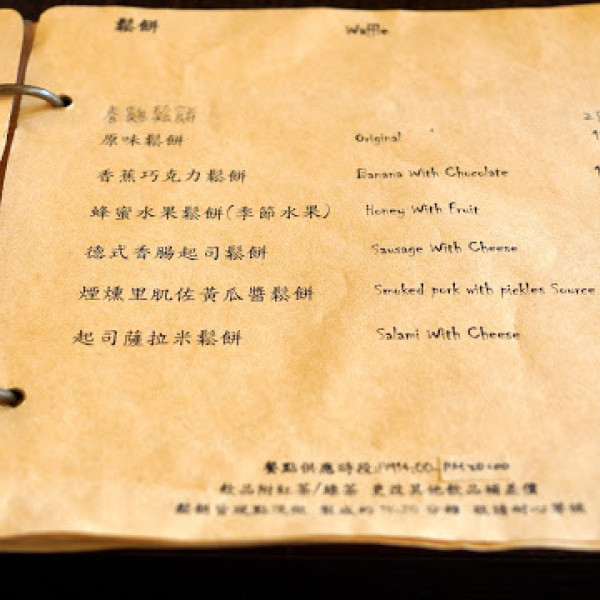 鬆餅 Waffle
鬆餅
原味鬆餅 Original
香蕉巧克力鬆餅 Banana With Chocolate
蜂蜜水果鬆餅(季節水果) Honey With Fruit
德式香腸起司鬆餅 Sausage With Cheese
煙燻里肌佐黃瓜醬鬆餅 Smoked pork with pickles Source
起司薩拉米鬆餅 Salami With Cheese
餐點供應時段:PM14:00-PM20:00
飲品附紅茶/綠茶 更改其他飲品補差價
鬆餅皆現點現做 製成約15-20分鐘 敬請耐心等候